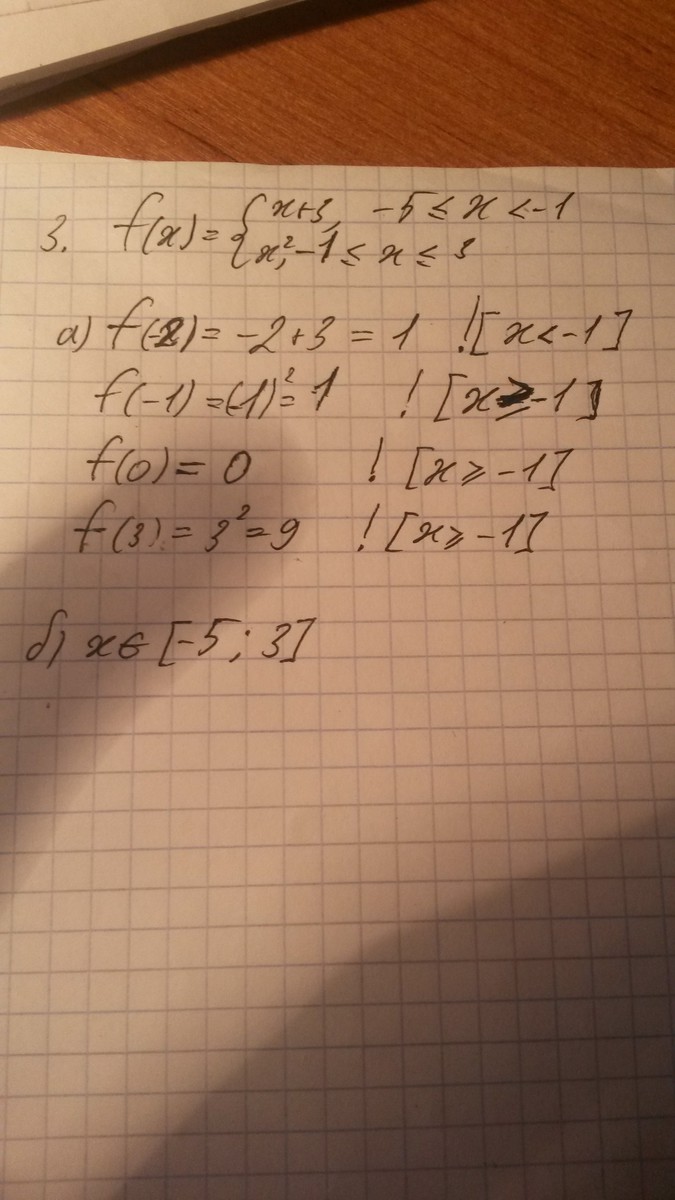 3. f(x) = { x+3, -5 ≤ x < -1
x², -1 ≤ x ≤ 3
а) f(-2) = -2+3 = 1 ! [x < -1]
f(-1) = (-1)² = 1 ! [x ≥ -1]
f(0) = 0 ! [x ≥ -1]
f(3) = 3² = 9 ! [x ≥ -1]
б) x ∈ [-5; 3]